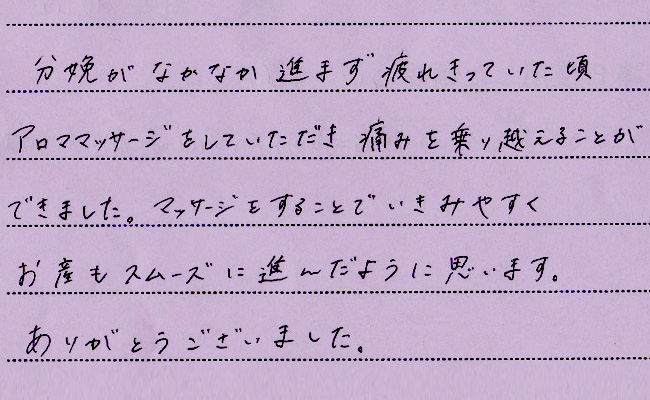 分娩がなかなか進まず疲れきっていた頃
アロママッサージをしていただき 痛みを乗り越えることが
できました。マッサージをすることでいきみやすく
お産もスムーズに進んだように思います。
ありがとうございました。